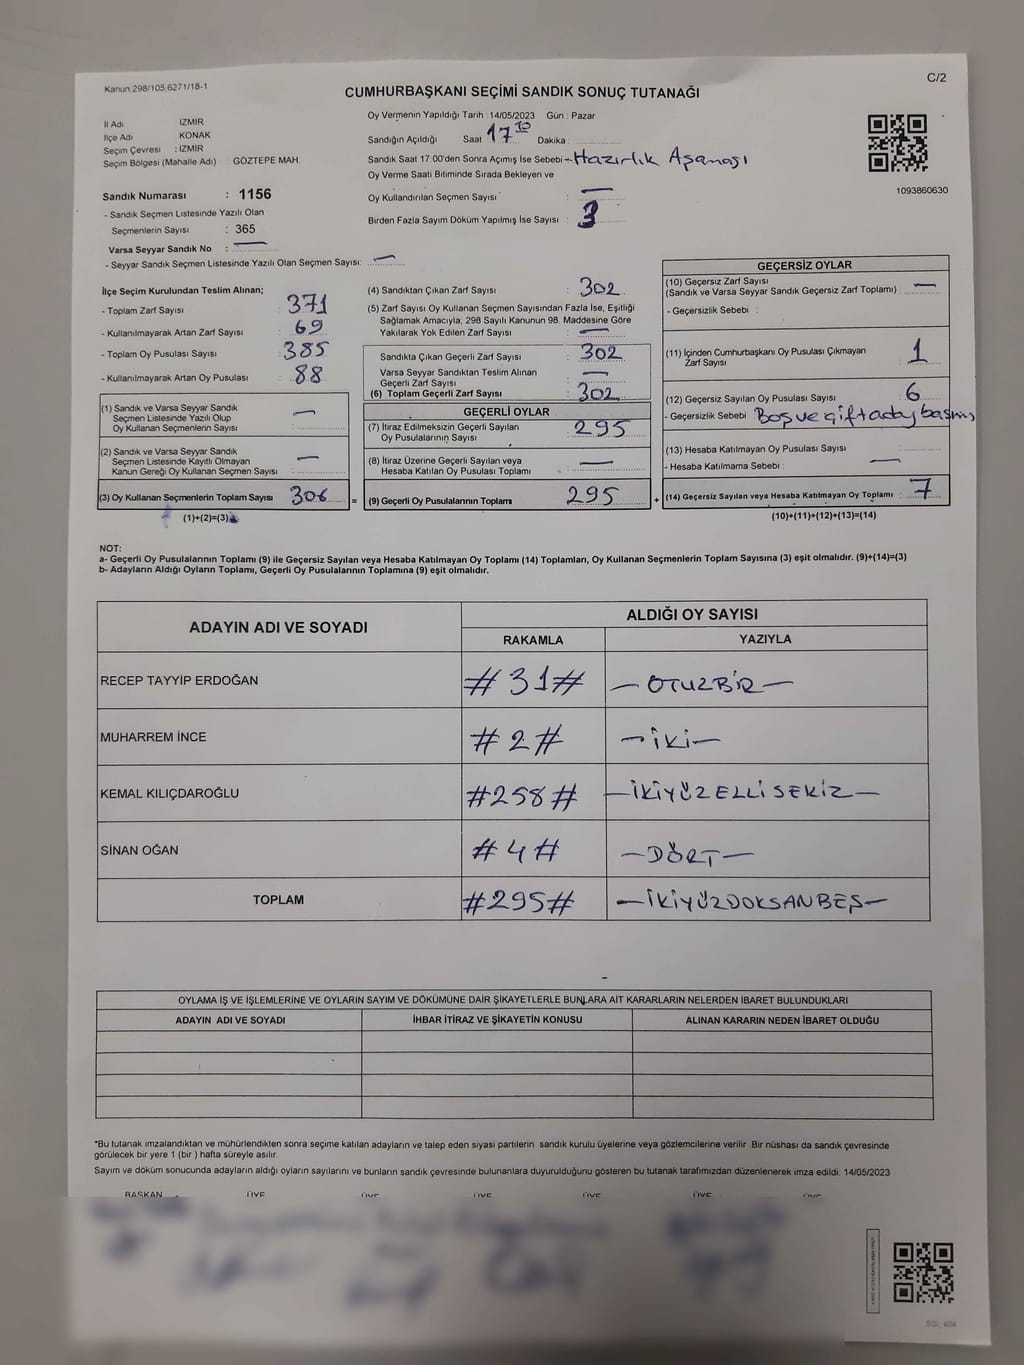 Kanun 298/105,6271/18-1
C/2
CUMHURBAŞKANI SEÇİMİ SANDIK SONUÇ TUTANAĞI
İl Adı İZMİR
İlçe Adı KONAK
Seçim Çevresi : İZMİR
Seçim Bölgesi (Mahalle Adı) GÖZTEPE MAH.
Sandık Numarası : 1156
- Sandık Seçmen Listesinde Yazılı Olan
Seçmenlerin Sayısı : 365
Varsa Seyyar Sandık No : —
- Seyyar Sandık Seçmen Listesinde Yazılı Olan Seçmen Sayısı: —
Oy Vermenin Yapıldığı Tarih : 14/05/2023 Gün : Pazar
Sandığın Açıldığı Saat 17 10 Dakika :
Sandık Saat 17:00'den Sonra Açımış İse Sebebi - Hazırlık Aşaması
Oy Verme Saati Bitiminde Sırada Bekleyen ve
Oy Kullandırılan Seçmen Sayısı : —
Birden Fazla Sayım Döküm Yapılmış İse Sayısı : 3
1093860630
İlçe Seçim Kurulundan Teslim Alınan;
- Toplam Zarf Sayısı 371
- Kullanılmayarak Artan Zarf Sayısı 69
- Toplam Oy Pusulası Sayısı 385
- Kullanılmayarak Artan Oy Pusulası 88
(1) Sandık ve Varsa Seyyar Sandık
Seçmen Listesinde Yazılı Olup
Oy Kullanan Seçmenlerin Sayısı —
(2) Sandık ve Varsa Seyyar Sandık
Seçmen Listesinde Kayıtlı Olmayan
Kanun Gereği Oy Kullanan Seçmen Sayısı —
(3) Oy Kullanan Seçmenlerin Toplam Sayısı 306 =
(1)+(2)=(3)
(4) Sandıktan Çıkan Zarf Sayısı : 302
(5) Zarf Sayısı Oy Kullanan Seçmen Sayısından Fazla İse, Eşitliği
Sağlamak Amacıyla; 298 Sayılı Kanunun 98. Maddesine Göre
Yakılarak Yok Edilen Zarf Sayısı : —
Sandıkta Çıkan Geçerli Zarf Sayısı : 302
Varsa Seyyar Sandıktan Teslim Alınan
Geçerli Zarf Sayısı : —
(6) Toplam Geçerli Zarf Sayısı : 302
GEÇERLİ OYLAR
(7) İtiraz Edilmeksizin Geçerli Sayılan
Oy Pusulalarının Sayısı : 295
(8) İtiraz Üzerine Geçerli Sayılan veya
Hesaba Katılan Oy Pusulası Toplamı : —
(9) Geçerli Oy Pusulalarının Toplamı 295 +
GEÇERSİZ OYLAR
(10) Geçersiz Zarf Sayısı
(Sandık ve Varsa Seyyar Sandık Geçersiz Zarf Toplamı) : —
- Geçersizlik Sebebi :
(11) İçinden Cumhurbaşkanı Oy Pusulası Çıkmayan
Zarf Sayısı : 1
(12) Geçersiz Sayılan Oy Pusulası Sayısı : 6
- Geçersizlik Sebebi : Boş ve çift aday basmış
(13) Hesaba Katılmayan Oy Pusulası Sayısı :
- Hesaba Katılmama Sebebi : —
(14) Geçersiz Sayılan veya Hesaba Katılmayan Oy Toplamı : 7
(10)+(11)+(12)+(13)=(14)
NOT:
a- Geçerli Oy Pusulalarının Toplamı (9) ile Geçersiz Sayılan veya Hesaba Katılmayan Oy Toplamı (14) Toplamları, Oy Kullanan Seçmenlerin Toplam Sayısına (3) eşit olmalıdır. (9)+(14)=(3)
b- Adayların Aldığı Oyların Toplamı, Geçerli Oy Pusulalarının Toplamına (9) eşit olmalıdır.
ADAYIN ADI VE SOYADI
ALDIĞI OY SAYISI
RAKAMLA YAZIYLA
RECEP TAYYİP ERDOĞAN #31# —OTUZBİR—
MUHARREM İNCE #2# —İKİ—
KEMAL KILIÇDAROĞLU #258# —İKİYÜZELLİSEKİZ—
SİNAN OĞAN #4# —DÖRT—
TOPLAM #295# —İKİYÜZDOKSANBEŞ—
OYLAMA İŞ VE İŞLEMLERİNE VE OYLARIN SAYIM VE DÖKÜMÜNE DAİR ŞİKAYETLERLE BUNLARA AİT KARARLARIN NELERDEN İBARET BULUNDUKLARI
ADAYIN ADI VE SOYADI İHBAR İTİRAZ VE ŞİKAYETİN KONUSU ALINAN KARARIN NEDEN İBARET OLDUĞU
*Bu tutanak imzalandıktan ve mühürlendikten sonra seçime katılan adayların ve talep eden siyasi partilerin sandık kurulu üyelerine veya gözlemcilerine verilir. Bir nüshası da sandık çevresinde
görülecek bir yere 1 (bir ) hafta süreyle asılır.
Sayım ve döküm sonucunda adayların aldığı oyların sayılarını ve bunların sandık çevresinde bulunanlara duyurulduğunu gösteren bu tutanak tarafımızdan düzenlenerek imza edildi. 14/05/2023
BAŞKAN ÜYE ÜYE ÜYE ÜYE ÜYE ÜYE